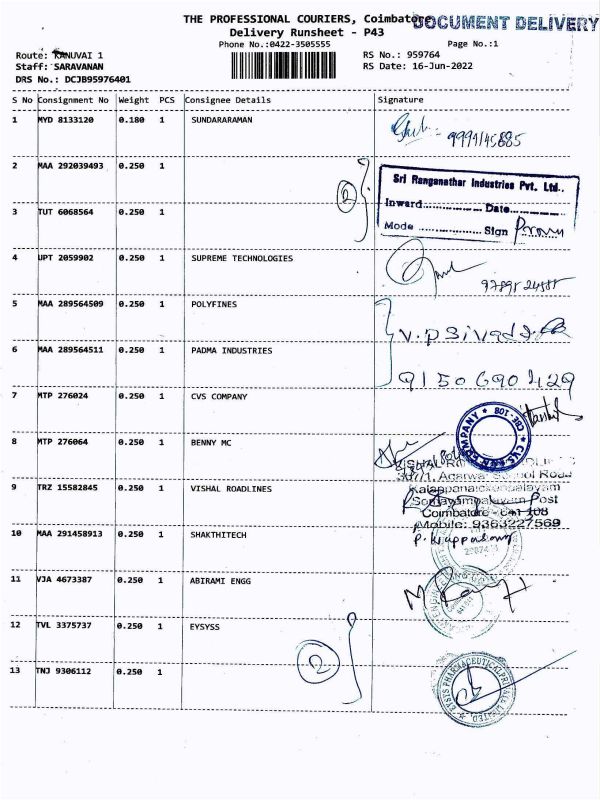 THE PROFESSIONAL COURIERS, Coimbatore
DOCUMENT DELIVERY
Delivery Runsheet - P43
Phone No.:0422-3505555
Page No.:1
Route: KANUVAI 1
RS No.: 959764
Staff: SARAVANAN
RS Date: 16-Jun-2022
DRS No.: DCJB95976401
S No Consignment No Weight PCS Consignee Details Signature
1 MYD 8133120 0.180 1 SUNDARARAMAN
2 MAA 292039493 0.250 1
2
Sri Ranganathar Industries Pvt. Ltd.,
Inward.................. Date..................
Mode .................. Sign
3 TUT 6068564 0.250 1
4 UPT 2059902 0.250 1 SUPREME TECHNOLOGIES
5 MAA 289564509 0.250 1 POLYFINES
6 MAA 289564511 0.250 1 PADMA INDUSTRIES
9150690429
7 MTP 276024 0.250 1 CVS COMPANY
8 MTP 276064 0.250 1 BENNY MC
9 TRZ 15582845 0.250 1 VISHAL ROADLINES
Kalappanaickenpalayam
Somayampalayam Post
Coimbatore - 641 108
Mobile: 9363227569
10 MAA 291458913 0.250 1 SHAKTHITECH
11 VJA 4673387 0.250 1 ABIRAMI ENGG
12 TVL 3375737 0.250 1 EYSYSS
2
13 TNJ 9306112 0.250 1